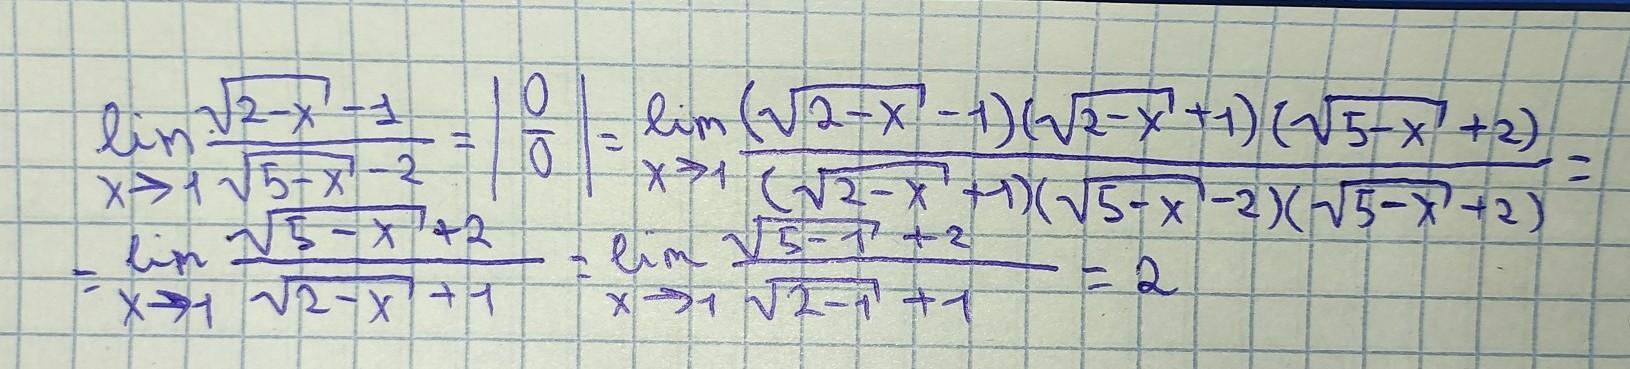 lim x→1 (√(2-x) - 1)/(√(5-x) - 2) = |0/0| = lim x→1 ((√(2-x) - 1)(√(2-x) + 1)(√(5-x) + 2))/((√(2-x) + 1)(√(5-x) - 2)(√(5-x) + 2)) =
= lim x→1 (√(5-x) + 2)/(√(2-x) + 1) = lim x→1 (√(5-1) + 2)/(√(2-1) + 1) = 2